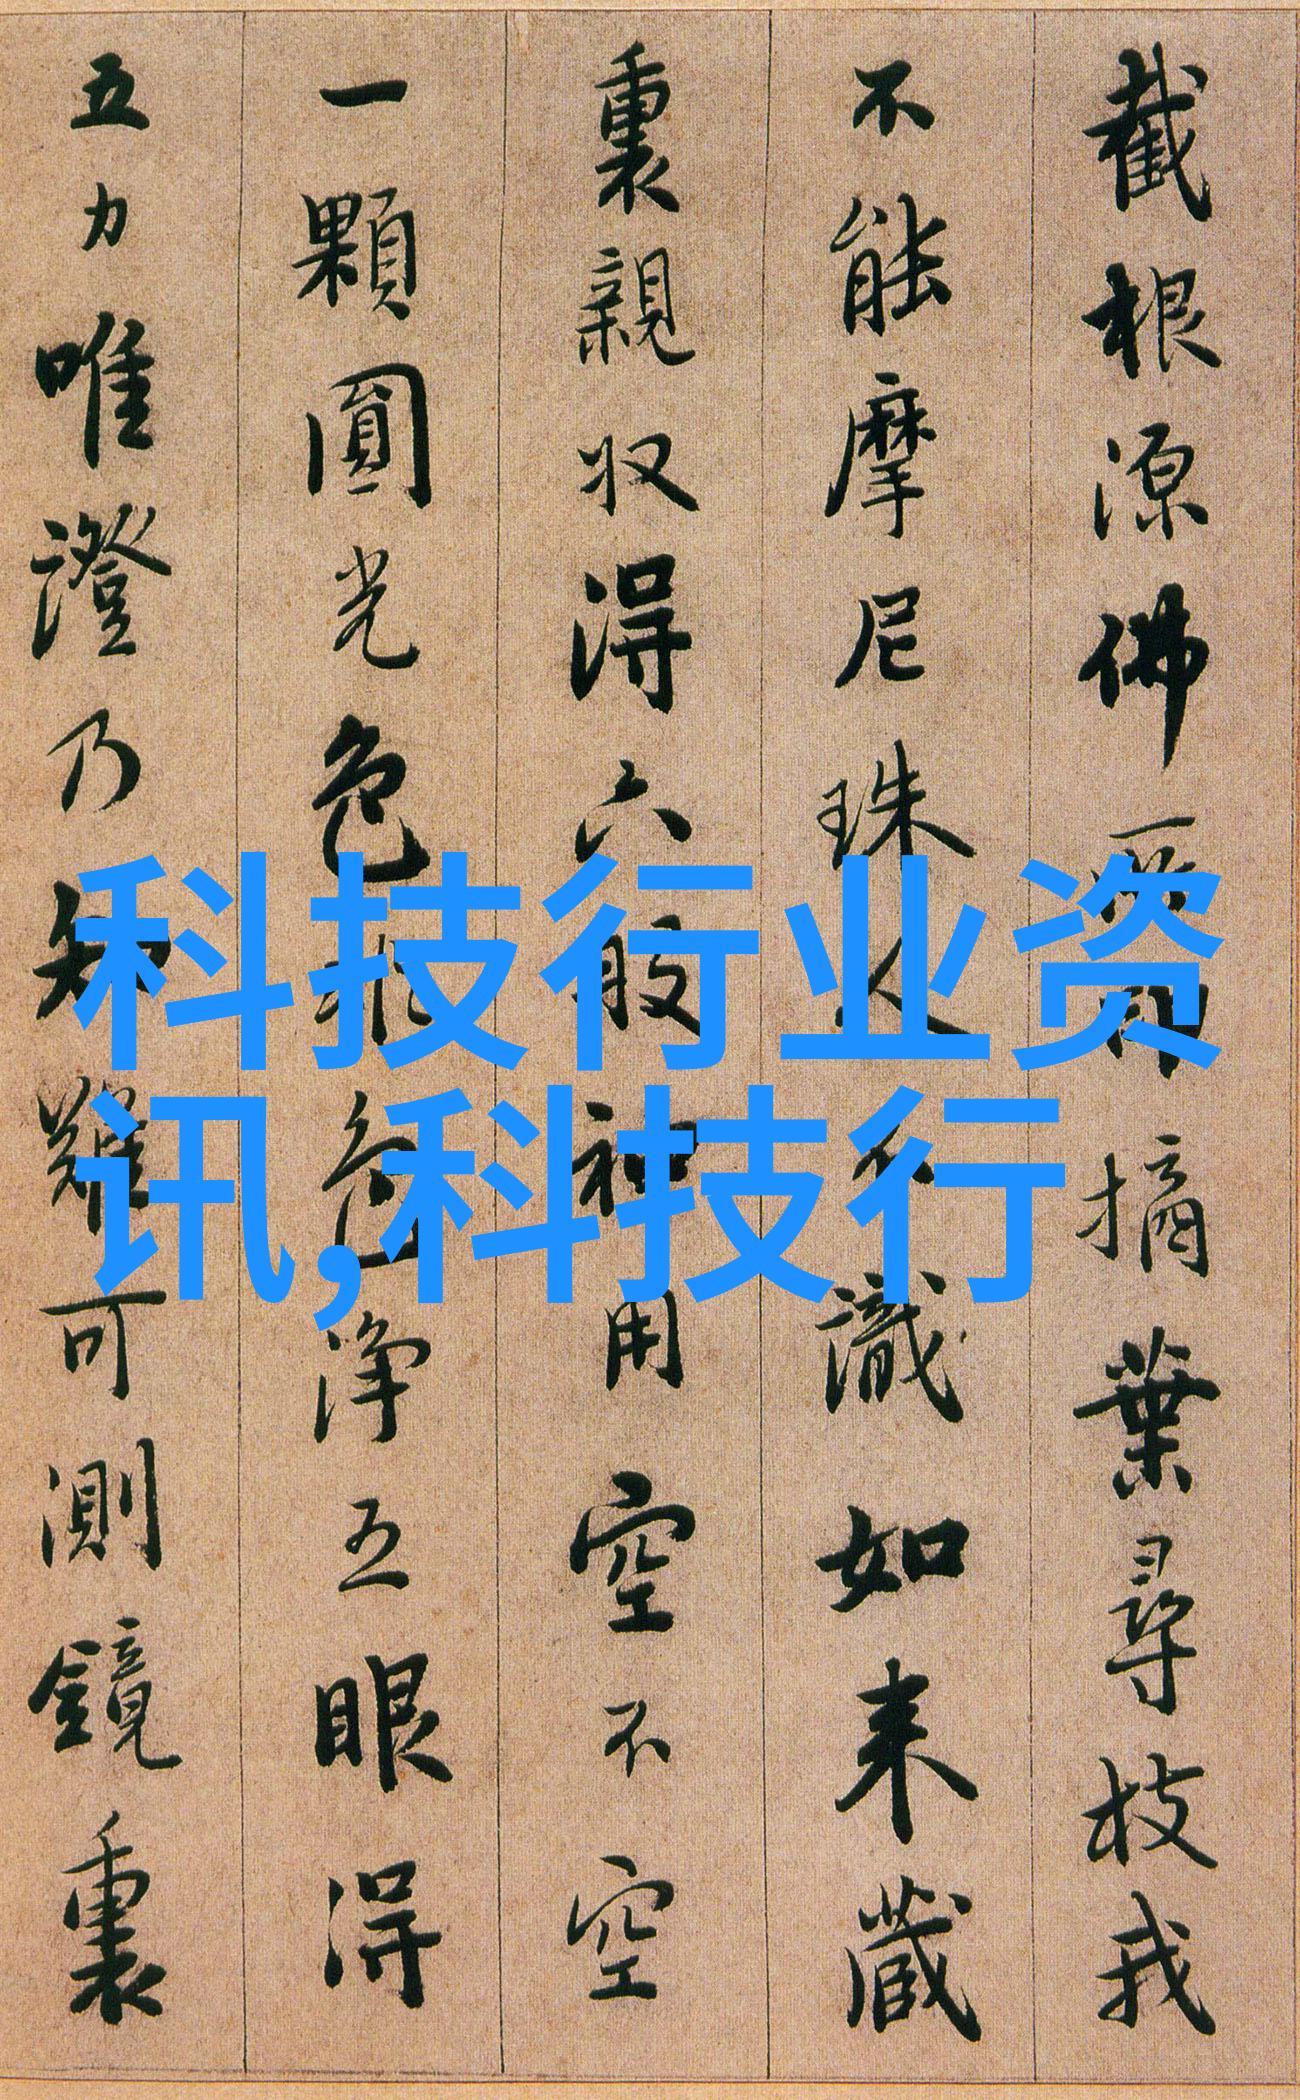 截根源佛所印摘葉尋枝我
不能摩尼珠人不識如来藏
裏親収得六般神用空不空
一顆圓光色非色淨五眼得
五力唯證乃知難可測鏡裏
科技行业资
讯,科技行